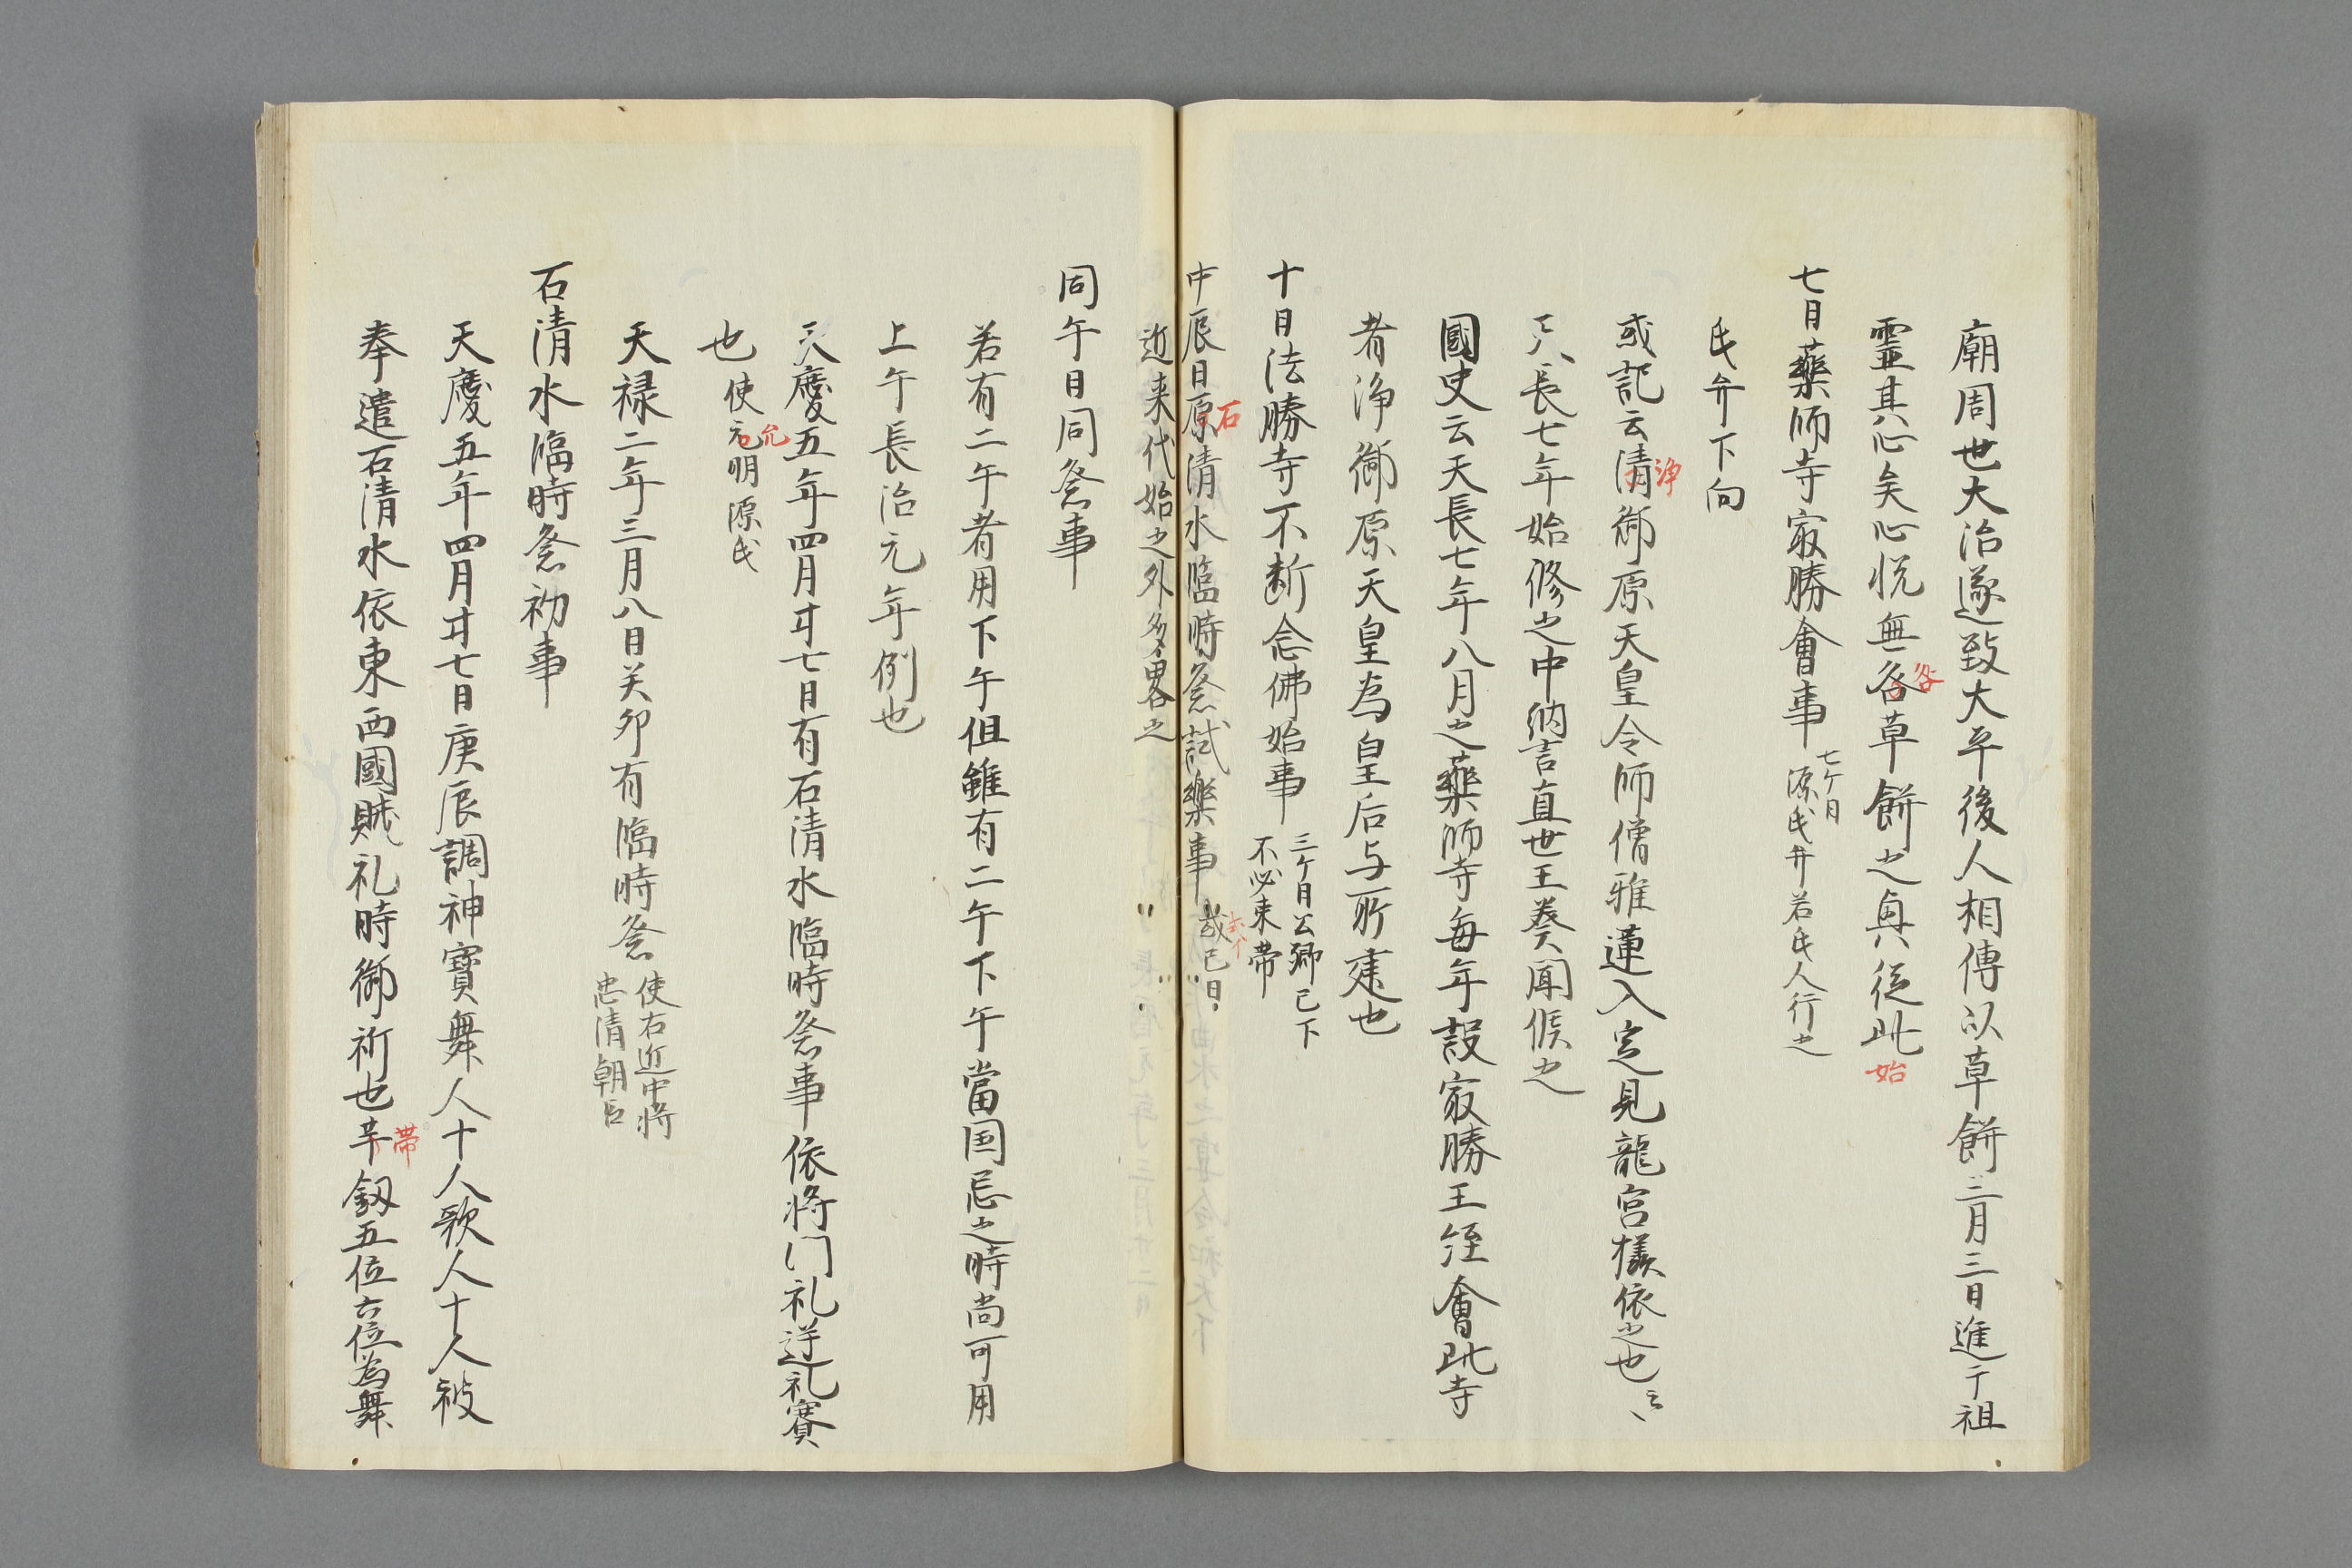 廟周世大治遂致大平後人相傳以草餅三月三日進于祖
靈其心矣心悦無各草餅之興従此
咎
始
七日藥師寺㝡勝會事
七ケ日
源氏并若氏人行之
氏弁下向
或記云清御原天皇令師僧雅蓮入定見龍宮樣依之也云々
浄
天長七年始修之中納言直世王奏聞候之
國史云天長七年八月之藥師寺毎年設㝡勝王経會此寺
者浄御原天皇為皇后与所建也
十日法勝寺不断念佛始事
三ケ日公卿已下
不必束帯
中辰日原清水臨時祭試樂事
石
或已日
近来代始之外多畧之
同午日同祭事
若有二午者用下午但雖有二午下午當国忌之時尚可用
上午長治元年例也
天慶五年四月廿七日有石清水臨時祭事依将门礼逆礼賽
也使元明源氏
允
天禄二年三月八日关卯有臨時祭
使右近中将
忠清朝臣
石清水臨時祭初事
天慶五年四月廿七日庚辰調神寶舞人十人歌人十人被
奉遣石清水依東西國賊礼時御祈也平釼五位六位為舞
帯